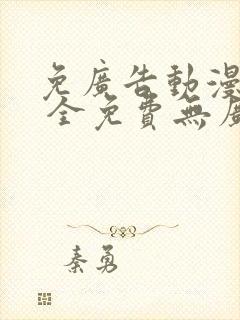 免廣告動漫
全免費無廣
秦勇